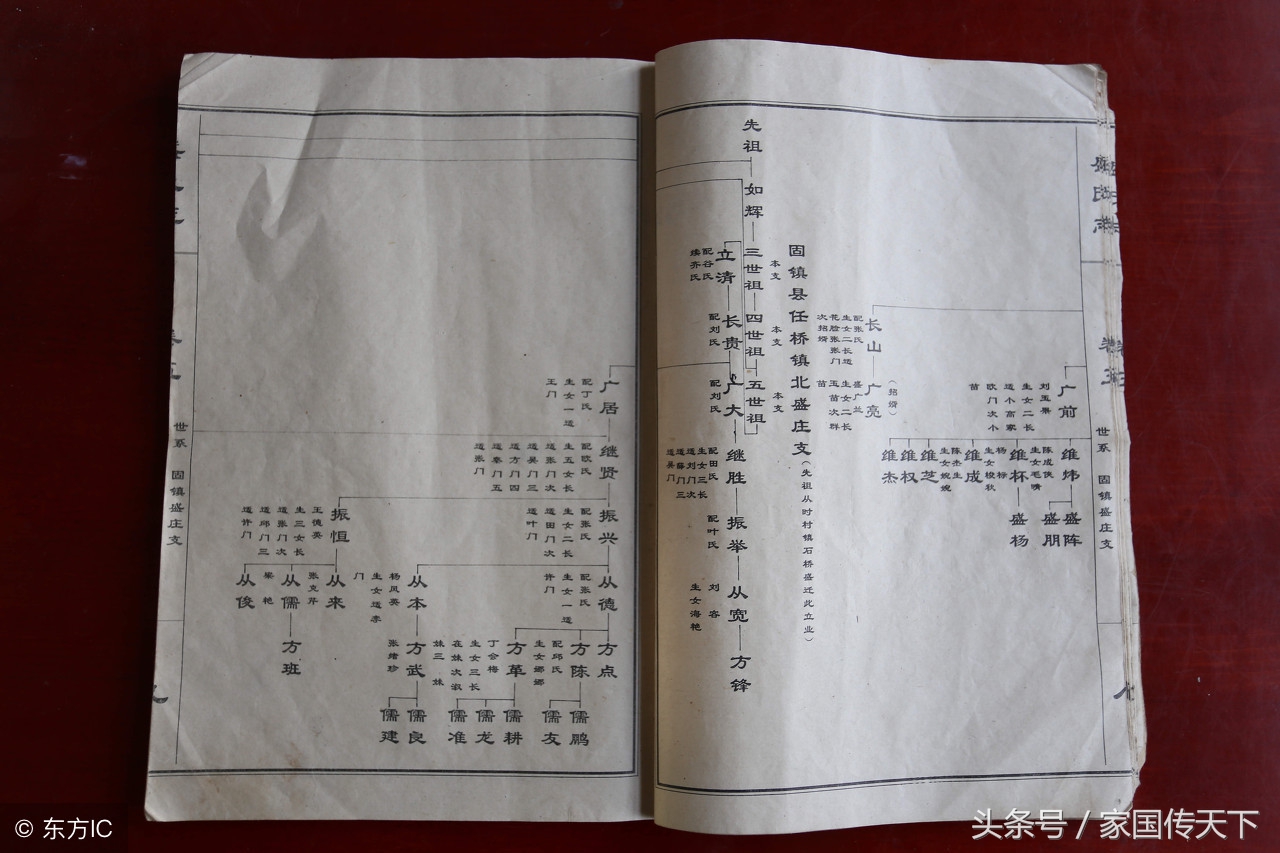 盛氏
世系 固镇盛庄支
广前
刘玉景
生女二长
适小高家
欧门次小
苗
维炜
盛阵
盛朋
陈成侠
生女毛嘴
维杯
盛杨
杨棕
生女梭秋
维成
陈杰生
生女婉婉
维芝
维权
维杰
长山
配张氏
生女二长适
花脸张张门
次招婿
广亮
(招婿)
盛广兰
生女二长
玉苗次群
苗
固镇县任桥镇北盛庄支
(先祖从时村镇石桥盛迁此立业)
先祖
如辉
三世祖
本支
四世祖
本支
五世祖
本支
立清
配谷氏
续齐氏
长贵
配刘氏
广大
配刘氏
继胜
配田氏
生女三长
适刘门次
适薛门三
适吴门
振举
配叶氏
从宽
刘容
生女海艳
方锋
广居
配丁氏
生女一适
王门
继贤
配欧氏
生五女长
适张门次
适吴门三
适方门四
适秦门五
适张门
振兴
配张氏
生女二长
适田门次
适叶门
振恒
王德英
生三女长
适张门次
适邱门三
适许门
从德
配张氏
生女一适
许门
从本
杨凤英
生女适李
门
从来
张克芹
从儒
梁艳
从俊
方点
方陈
配邱氏
生女娜娜
方革
丁会梅
生女三长
在妹次淑
妹三妹
方武
张绪珍
方班
儒鹏
儒友
儒耕
儒龙
儒准
儒良
儒建
世系 固镇盛庄支
© 东方IC
头条号 / 家国传天下